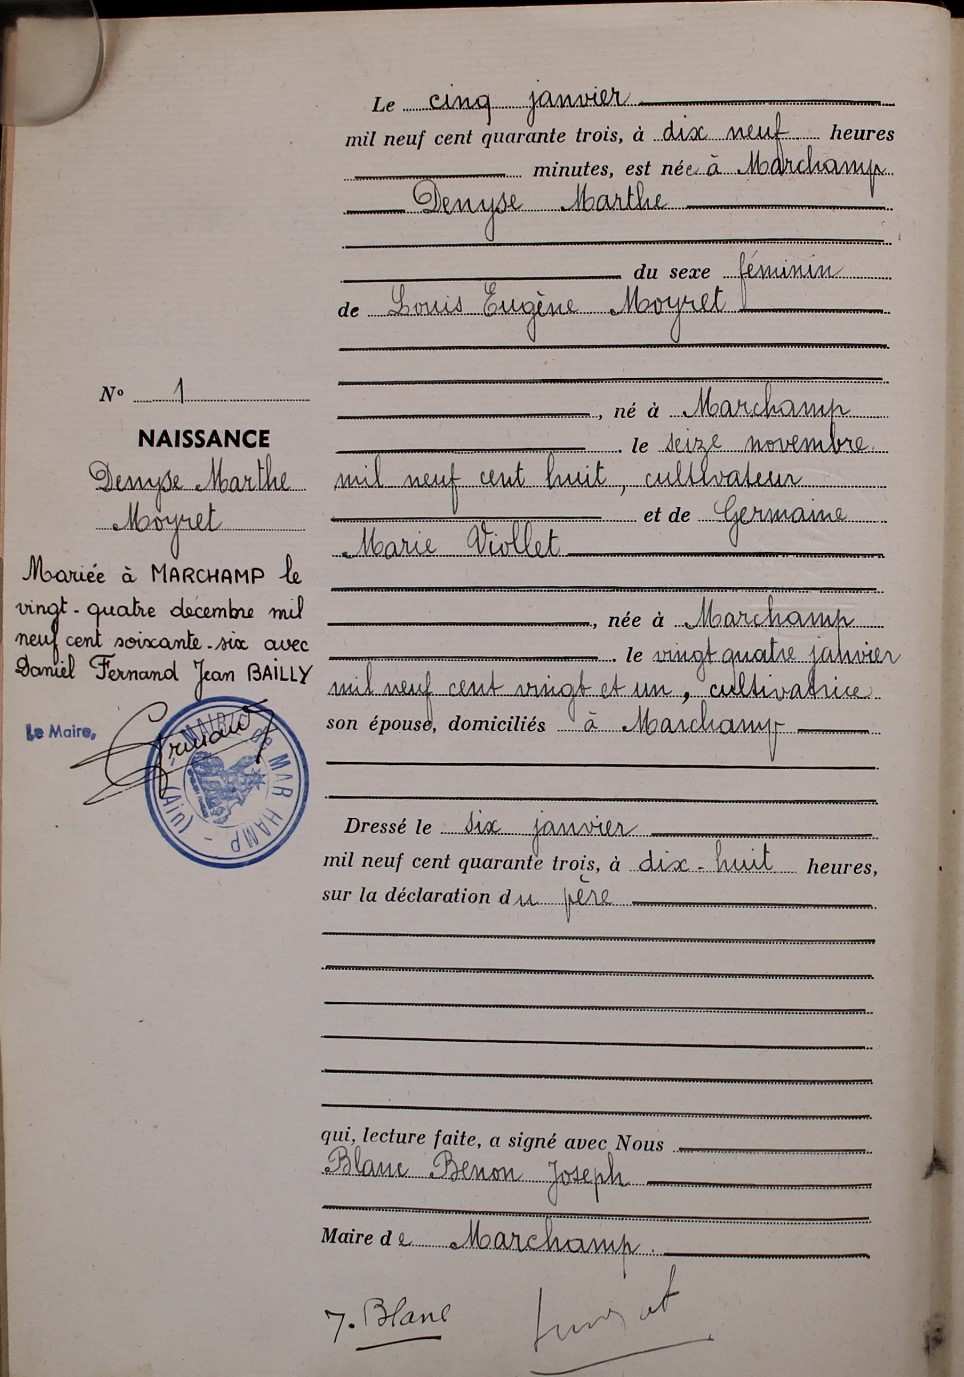 N° 1
NAISSANCE
Denyse Marthe
Moyret
Mariée à MARCHAMP le
vingt-quatre décembre mil
neuf cent soixante-six avec
Daniel Fernand Jean BAILLY
Le Maire,
MAIRIE de MARCHAMP - (Ain) -
Le cinq janvier
mil neuf cent quarante trois, à dix neuf heures
minutes, est née à Marchamp
Denyse Marthe
du sexe féminin
de Louis Eugène Moyret
, né à Marchamp
. le seize novembre
mil neuf cent huit, cultivateur
et de Germaine
Marie Viollet
, née à Marchamp
. le vingt quatre janvier
mil neuf cent vingt et un, cultivatrice
son épouse, domiciliés à Marchamp
Dressé le six janvier
mil neuf cent quarante trois, à dix-huit heures,
sur la déclaration du père
qui, lecture faite, a signé avec Nous
Blanc Benon Joseph
Maire de Marchamp.
J. Blanc